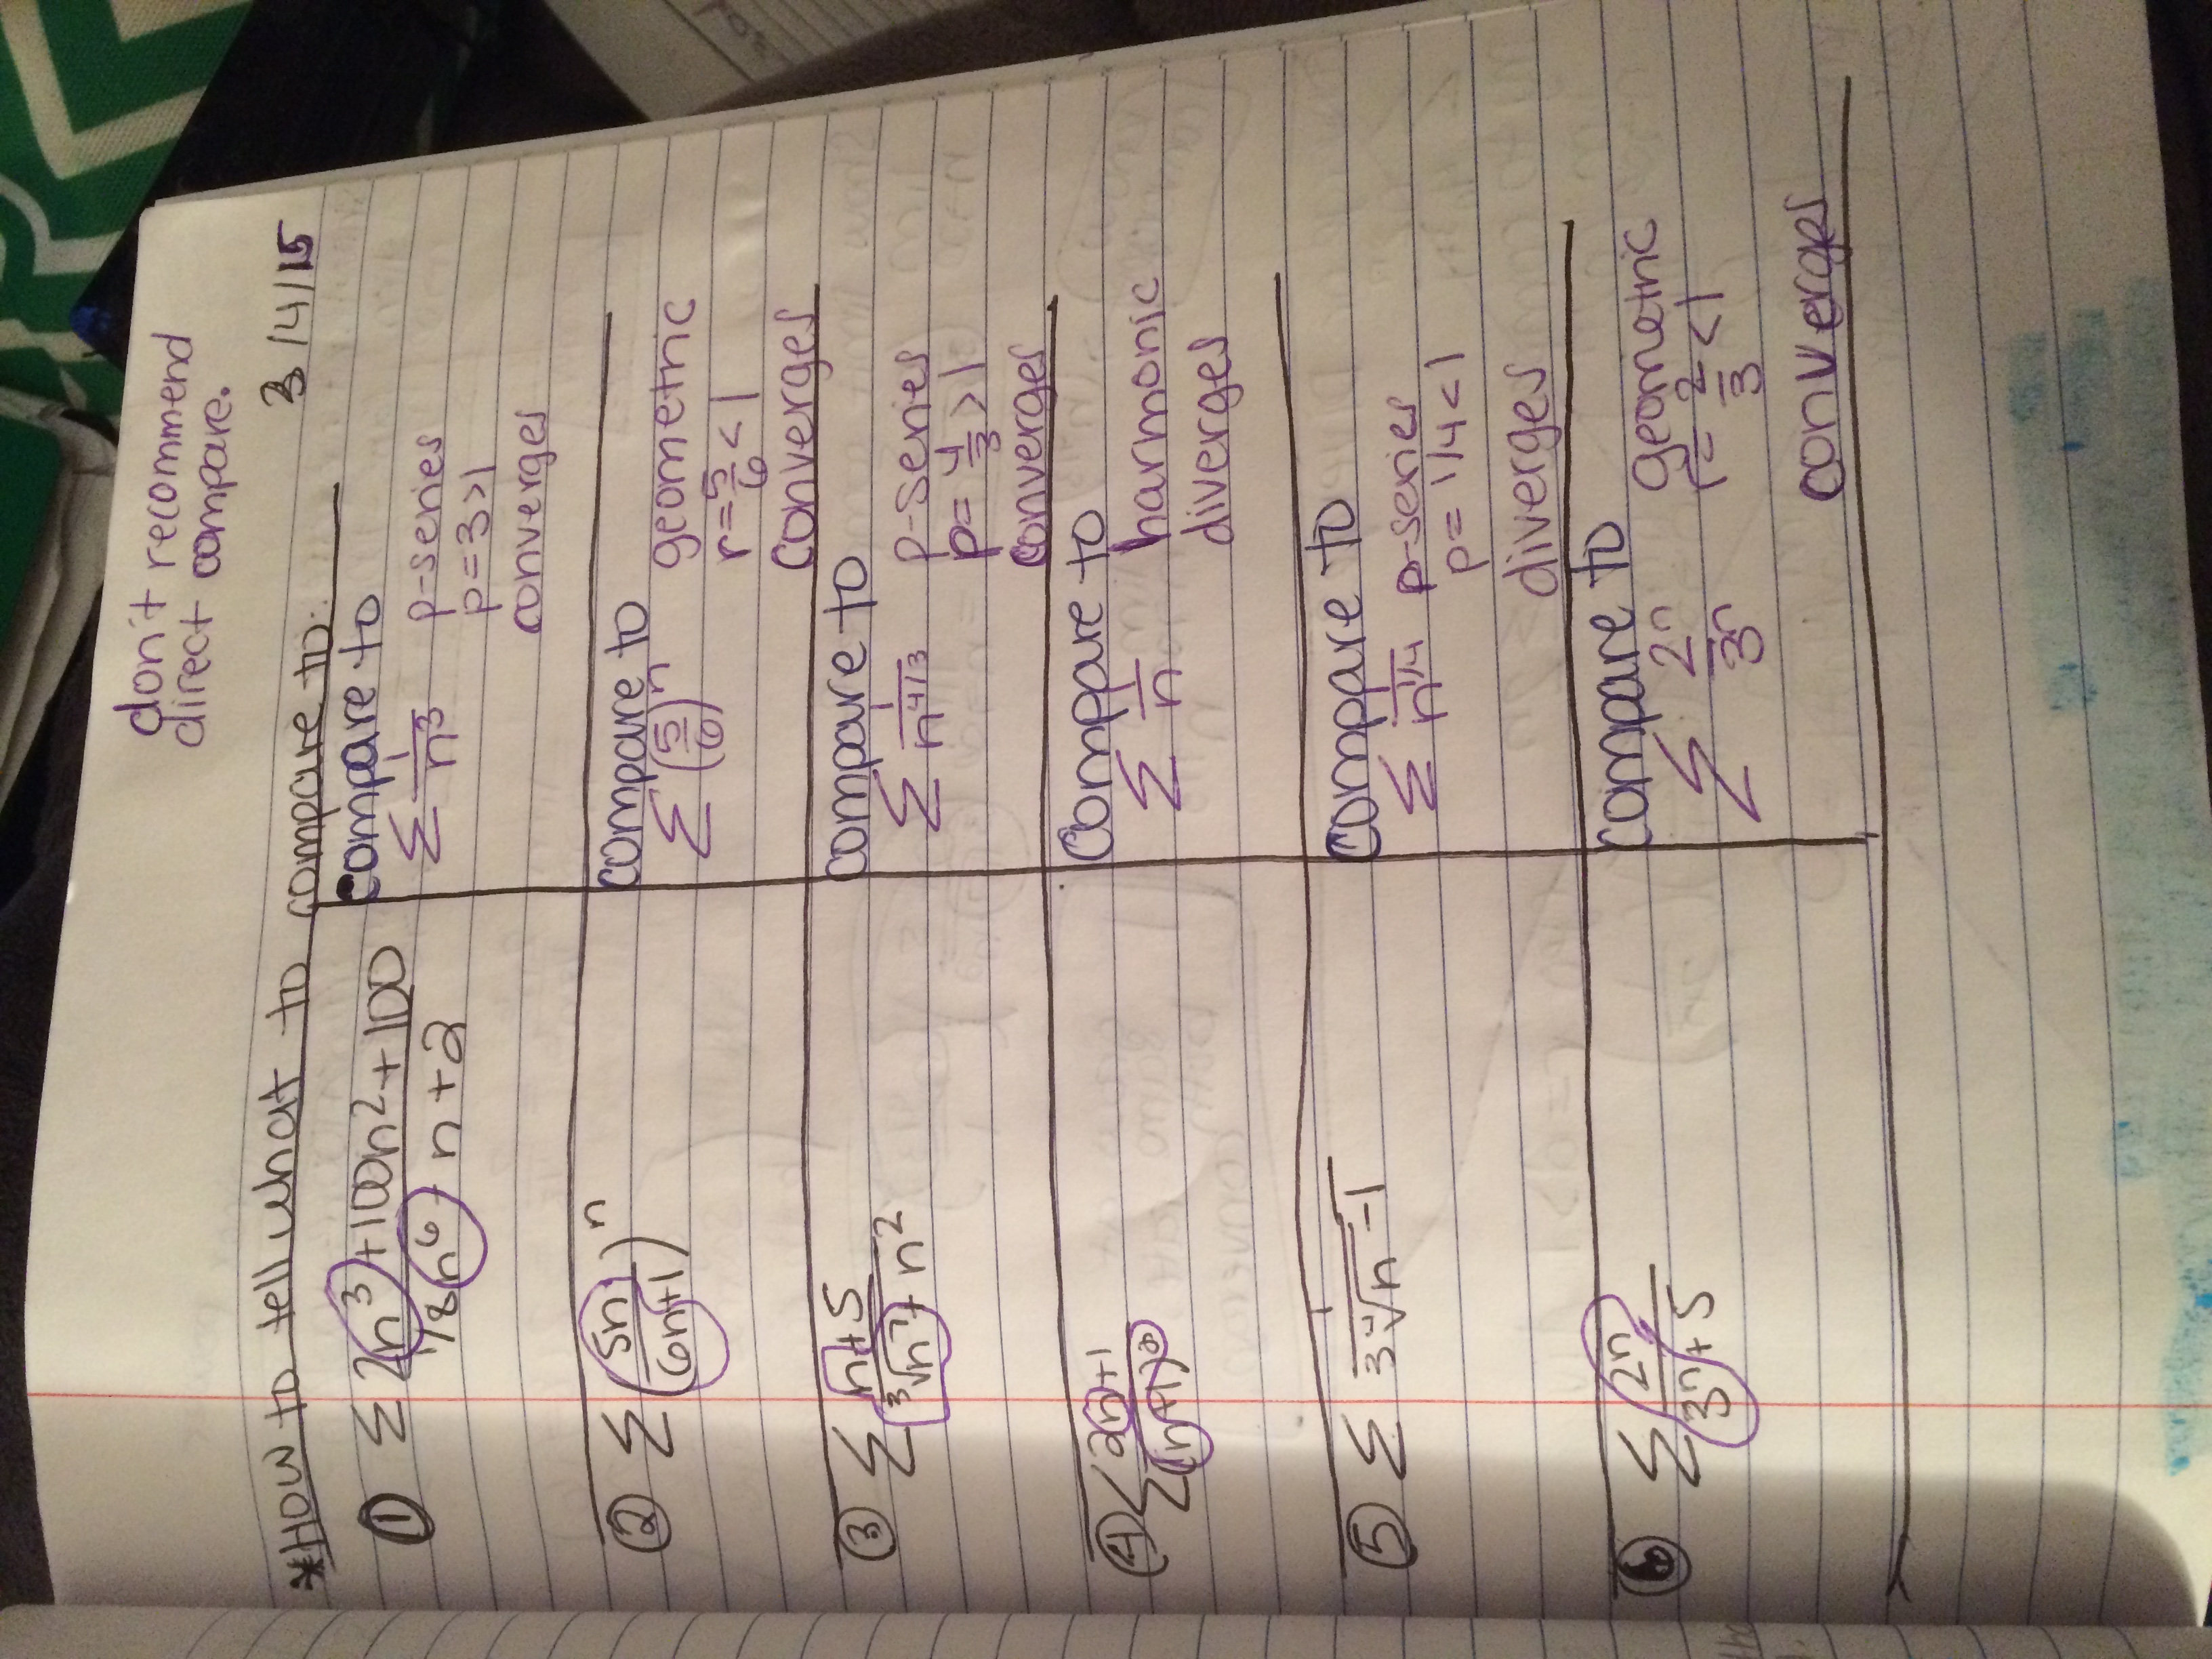 don't recommend
direct compare.
3/4/15
*How to tell what to compare to:
① Σ 2n³+100n²+100 / 1/8 n⁶ - n + 2
• compare to
Σ 1/n³ p-series
p=3>1
converges
② Σ (5n / 6n+1)ⁿ
compare to
Σ (5/6)ⁿ geometric
r=5/6<1
converges
③ Σ n+5 / ³√n⁷ + n²
compare to
Σ 1/n^4/3 p-series
p=4/3>1
converges
④ Σ 2n+1 / (n+1)²
compare to
Σ 1/n harmonic
diverges
⑤ Σ 1 / 3⁴√n - 1
compare to
Σ 1/n^1/4 p-series
p=1/4<1
diverges
⑥ Σ 2ⁿ / 3ⁿ+5
compare to
Σ 2ⁿ/3ⁿ geometric
r=2/3<1
converges